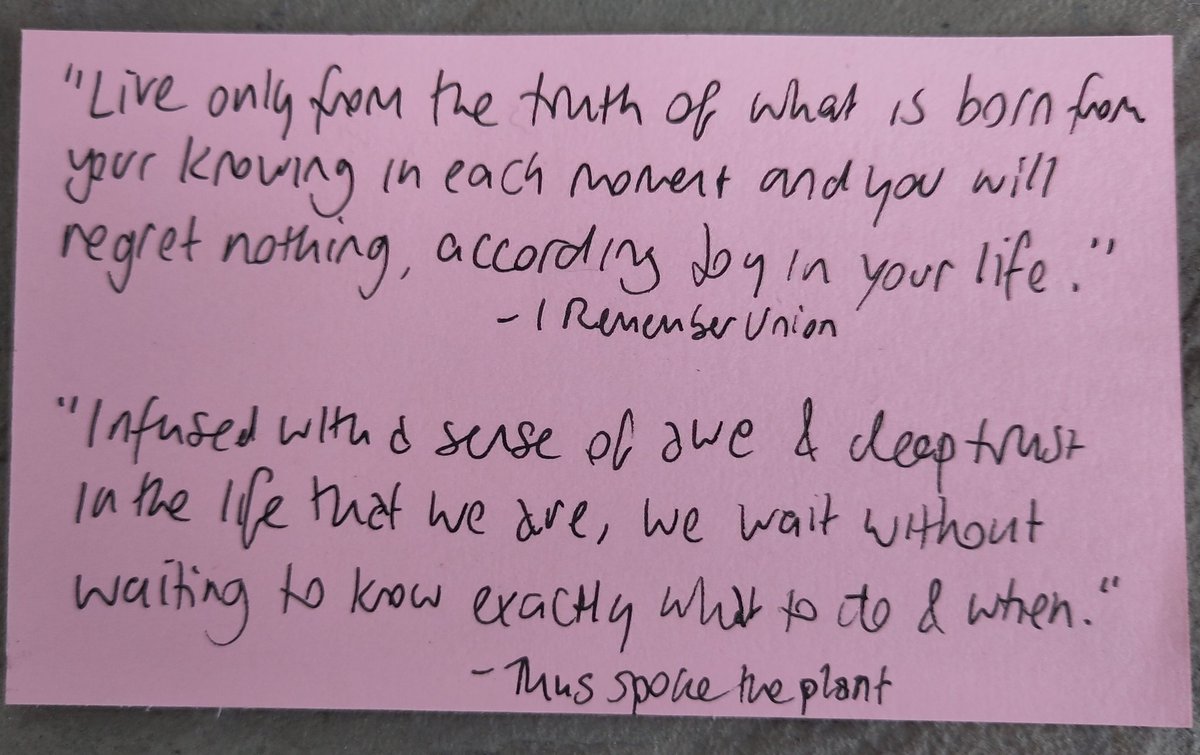 "Live only from the truth of what is born from
your knowing in each moment and you will
regret nothing, according joy in your life."
- I Remember Union
"Infused with a sense of awe & deep trust
in the life that we are, we wait without
waiting to know exactly what to do & when."
- Thus spoke the plant